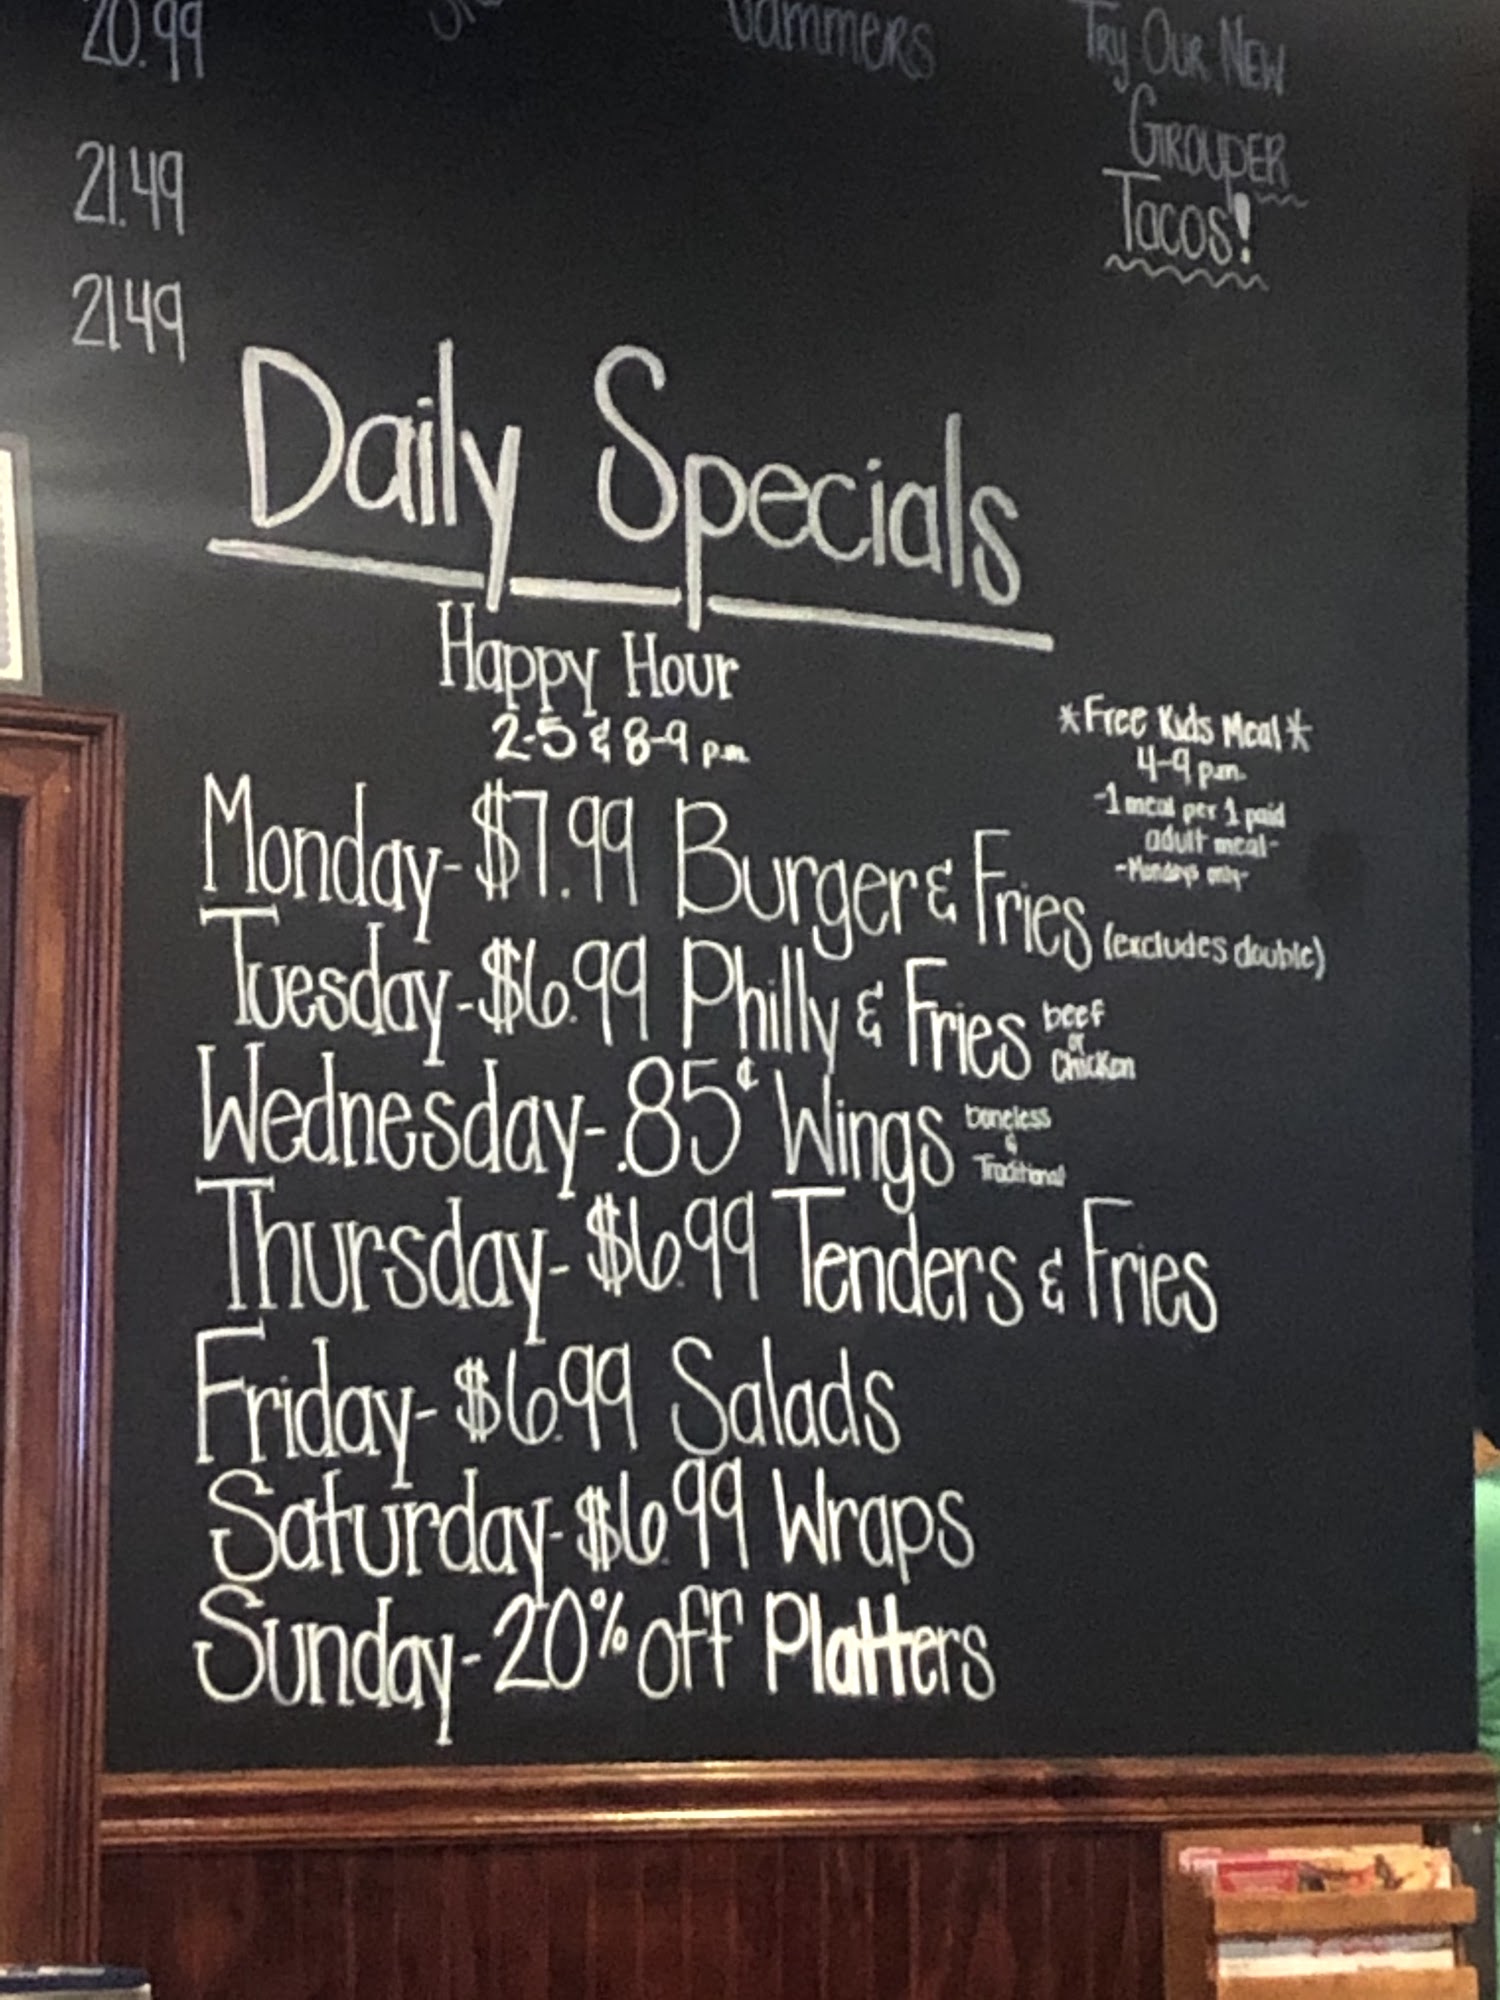 20.99
21.49
21.49
Jammers
Try Our New
Grouper
Tacos!
Daily Specials
Happy Hour
2-5 & 8-9 p.m.
*Free Kids Meal*
4-9 p.m.
-1 meal per 1 paid
adult meal-
-Mondays only-
Monday- $7.99 Burger & Fries (excludes double)
Tuesday- $6.99 Philly & Fries beef
or
Chicken
Wednesday- .85¢ Wings boneless
&
Traditional
Thursday- $6.99 Tenders & Fries
Friday- $6.99 Salads
Saturday- $6.99 Wraps
Sunday- 20% off Platters